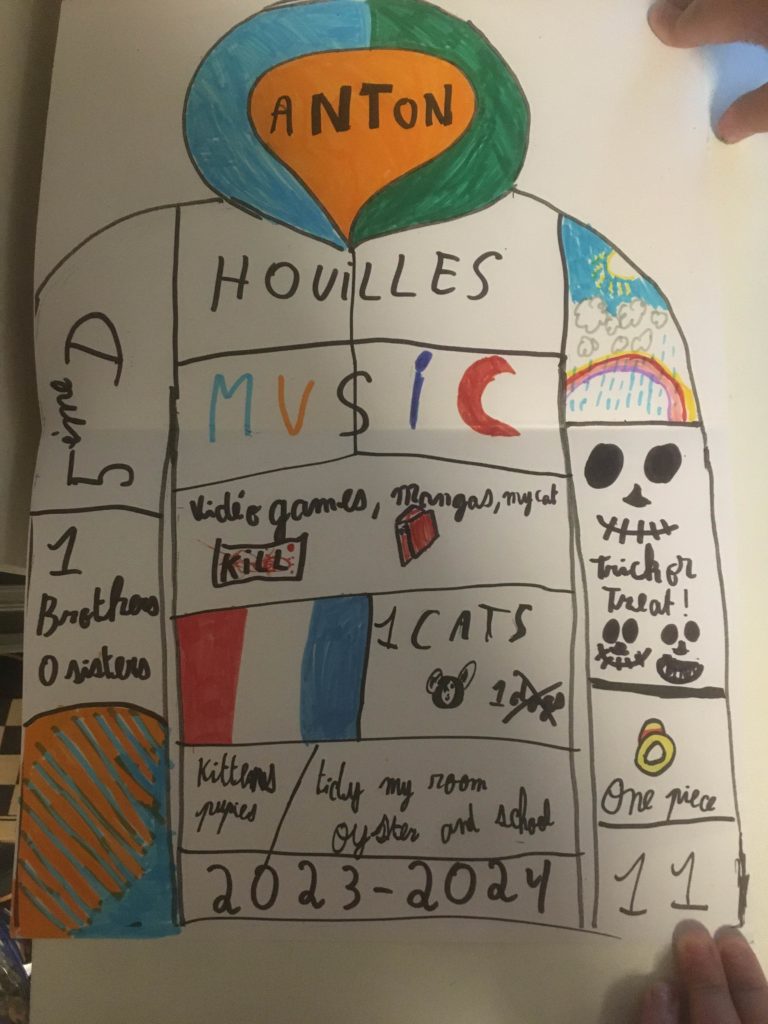 ANTON
HOUiLLES
MUSiC
5ème D
Vidéo games, Mangas, my cat
KiLL
1
Brothers
0 sisters
Trick or
Treat!
1 CATS
1 Dogs
Kittens
pupies
tidy my room
oyster and school
One piece
2023-2024
11